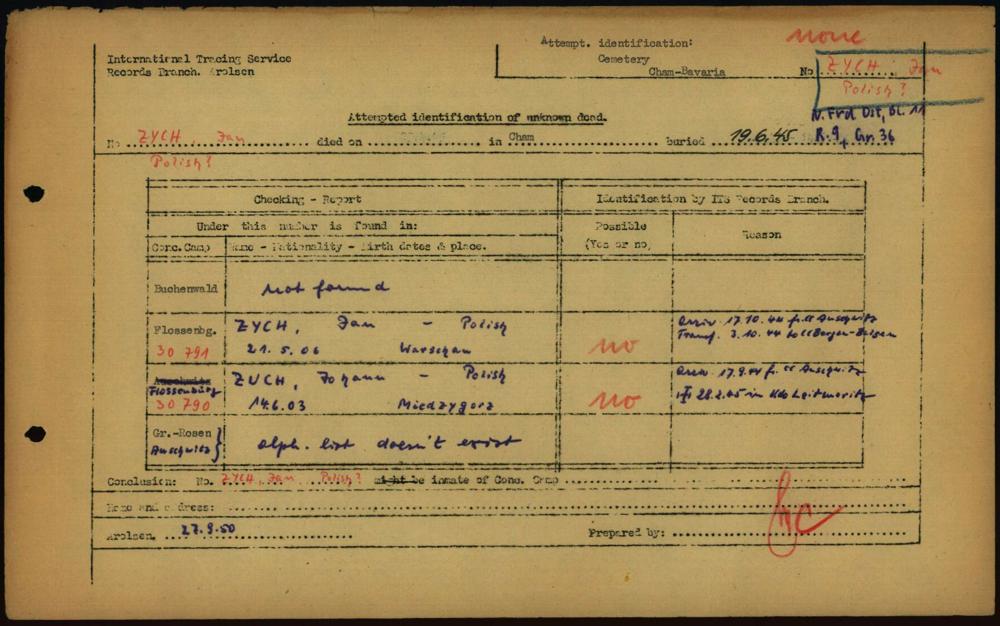 none
International Tracing Service
Records Branch. Arolsen
Attempt. identification:
Cemetery
Cham-Bavaria
No ZYCH, Jan
Polish?
N. Frd Ost, Bl. 11
R. 9, Gr. 36
Attempted identification of unknown dead.
No ZYCH, Jan died on in Cham buried 19.6.45
Polish?
Checking - Report
Identification by ITS Records Branch.
Under this number is found in:
Possible
(Yes or no)
Reason
Conc.Camp
Name - Nationality - Birth dates & place.
Buchenwald
not found
Flossenbg.
30 791
ZYCH, Jan - Polish
21. 5. 06 Warschau
no
Arriv. 17.10.44 fr. CC Auschwitz
Transf. 3.10.44 to CC Bergen-Belsen
Auschwitz
Flossenbürg
30 790
ZUCH, Johann - Polish
14.6.03 Miedzygorz
no
Arriv. 17.9.44 fr. CC Auschwitz
28.2.45 in Kdo Leitmeritz
Gr.-Rosen
Auschwitz }
alph. list doesn't exist
Conclusion: No. ZYCH, Jan Polish? might be inmate of Conc. Camp
Name and address:
Arolsen, 27.9.50
Prepared by: